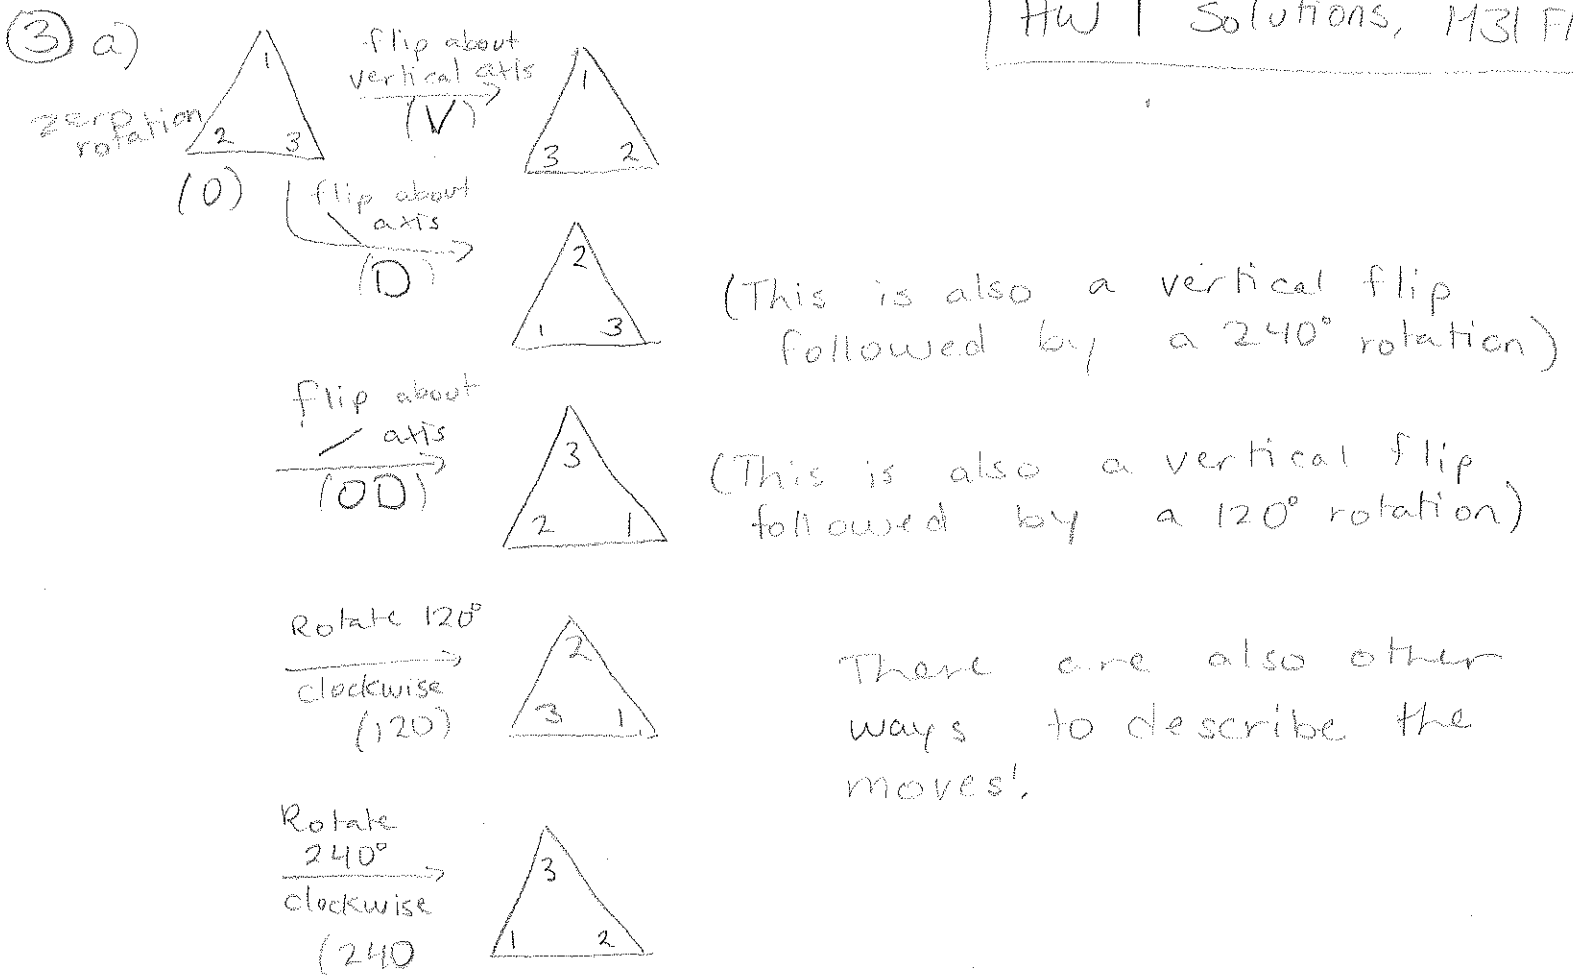 HW 1 Solutions, M31
3 a)
zero rotation
(0)
1
2 3
flip about
vertical axis
(V)
1
3 2
flip about
axis
(D)
2
1 3
(This is also a vertical flip
followed by a 240° rotation)
flip about
axis
(OD)
3
2 1
(This is also a vertical flip
followed by a 120° rotation)
Rotate 120°
clockwise
(120)
2
3 1
There are also other
ways to describe the
moves!
Rotate
240°
clockwise
(240
3
1 2